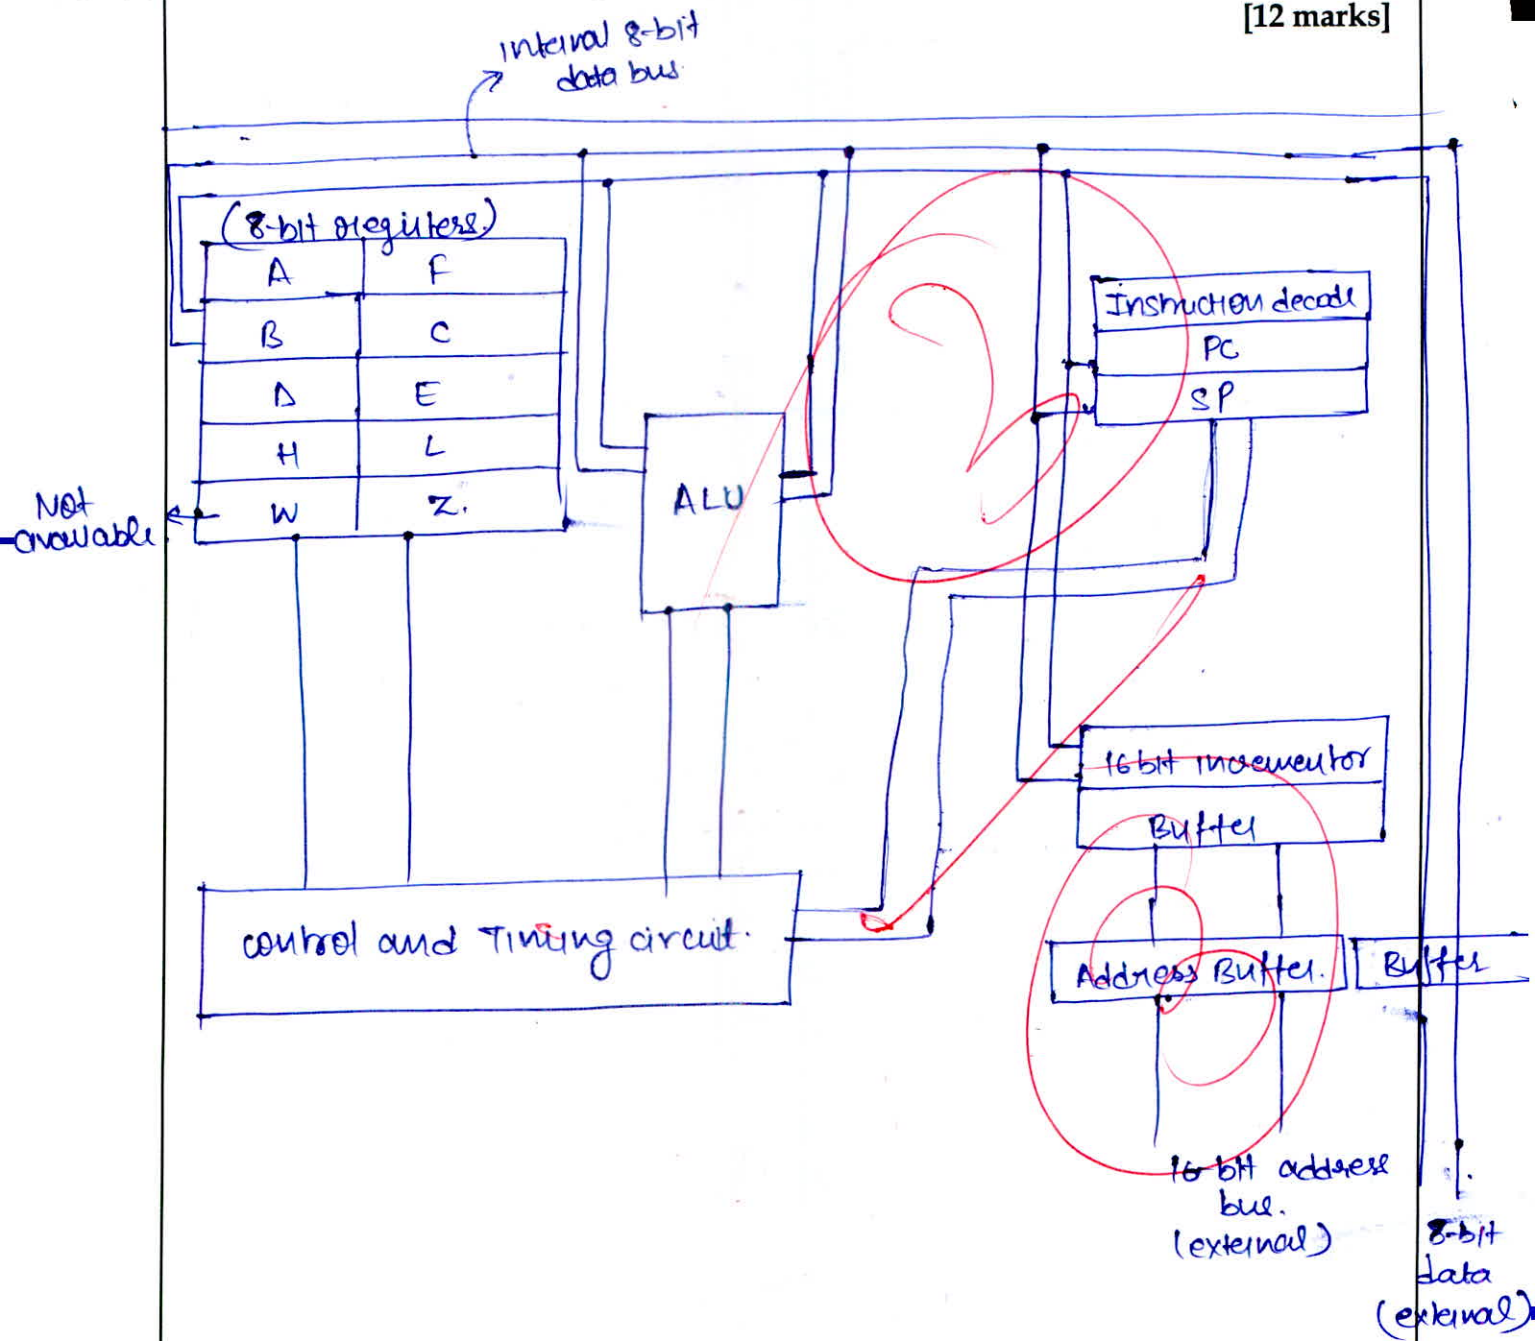 [12 marks]
Internal 8-bit
data bus
(8-bit registers)
A F
B C
D E
H L
W Z.
Not
available
ALU
Instruction decode
PC
SP
16 bit incrementor
Buffer
control and Timing circuit.
Address Buffer.
Buffer
16-bit address
bus.
(external)
8-bit
data
(external)